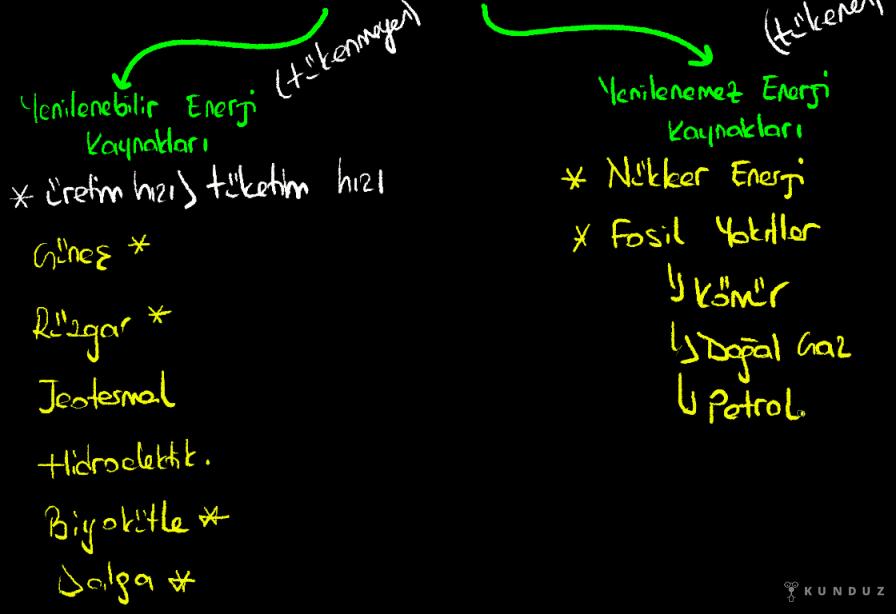 (tükenmeyen)
Yenilenebilir Energi
Kaynakları
* üretim hızı > tüketim hızı
Güneş *
Rüzgar *
Jeotermal
Hidroelektrik.
Biyokütle *
Dalga *
(tükenen)
Yenilenemez Energi
Kaynakları
* Nükleer Energi
* Fosil Yakıtlar
↳ Kömür
↳ Doğal Gaz
↳ Petrol.
KUNDUZ